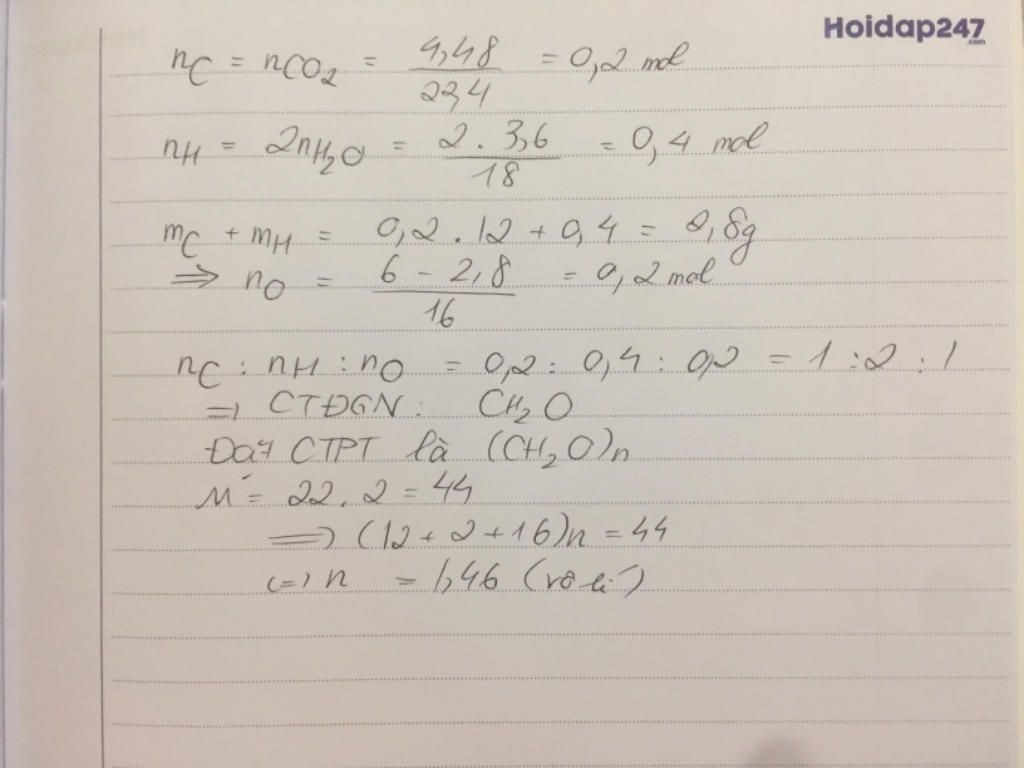 Hoidap247
.com
nC = nCO2 = 4,48/22,4 = 0,2 mol
nH = 2nH2O = 2 . 3,6/18 = 0,4 mol
mC + mH = 0,2 . 12 + 0,4 = 2,8g
=> nO = 6 - 2,8/16 = 0,2 mol
nC : nH : nO = 0,2 : 0,4 : 0,2 = 1 : 2 : 1
=> CTĐGN : CH2O
Đặt CTPT là (CH2O)n
M = 22 . 2 = 44
=> (12 + 2 + 16)n = 44
<=> n = 1,46 (vô lí)